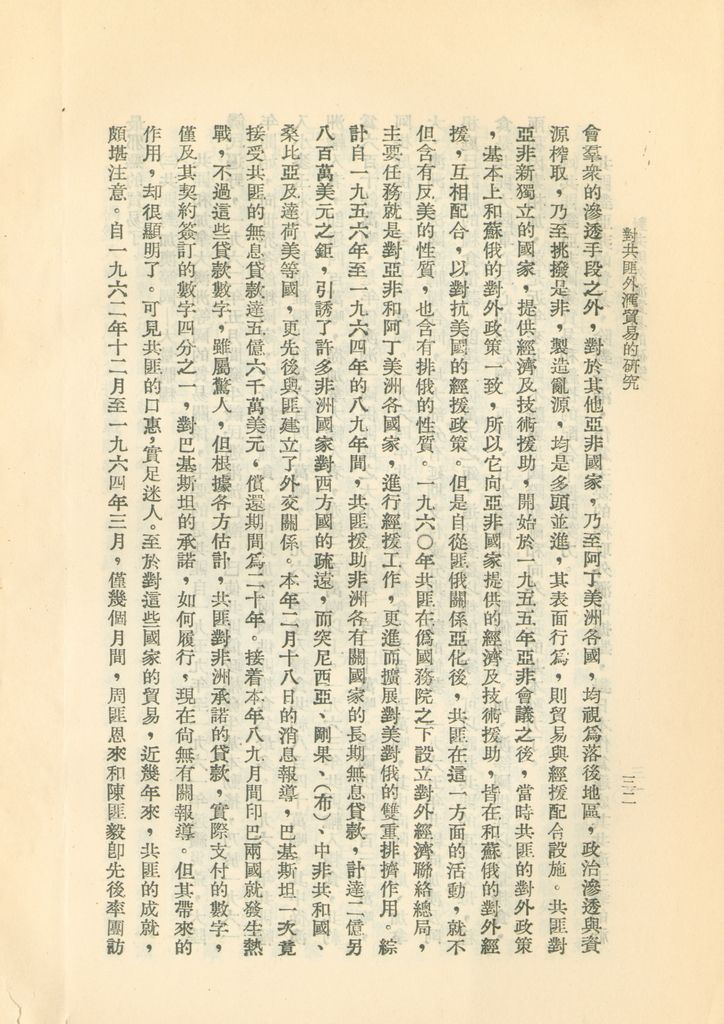 對共匪外滙貿易的研究
三二
會羣衆的滲透手段之外，對於其他亞非國家，乃至阿丁美洲各國，均視爲落後地區，政治滲透與資
源榨取，乃至挑撥是非，製造亂源，均是多頭並進，其表面行爲，則貿易與經援配合設施。共匪對
亞非新獨立的國家，提供經濟及技術援助，開始於一九五五年亞非會議之後，當時共匪的對外政策
，基本上和蘇俄的對外政策一致，所以它向亞非國家提供的經濟及技術援助，皆在和蘇俄的對外經
援，互相配合，以對抗美國的經援政策。但是自從匪俄關係亞化後，共匪在這一方面的活動，就不
但含有反美的性質，也含有排俄的性質。一九六〇年共匪在僞國務院之下設立對外經濟聯絡總局，
主要任務就是對亞非和阿丁美洲各國家，進行經援工作，更進而擴展對美對俄的雙重排擠作用。綜
計自一九五六年至一九六四年的八九年間，共匪援助非洲各有關國家的長期無息貸款，計達二億另
八百萬美元之鉅，引誘了許多非洲國家對西方國的疏遠，而突尼西亞、剛果、（布）、中非共和國、
桑比亞及達荷美等國，更先後與匪建立了外交關係。本年二月十八日的消息報導，巴基斯坦一次竟
接受共匪的無息貸款達五億六千萬美元，償還期間爲二十年。接着本年八九月間印巴兩國就發生熱
戰，不過這些貸款數字，雖屬驚人，但根據各方估計，共匪對非洲承諾的貸款，實際支付的數字，
僅及其契約簽訂的數字四分之一，對巴基斯坦的承諾，如何履行，現在尙無有關報導。但其帶來的
作用，却很顯明了。可見共匪的口惠，實足迷人。至於對這些國家的貿易，近幾年來，共匪的成就，
頗堪注意。自一九六二年十二月至一九六四年三月，僅幾個月間，周匪恩來和陳匪毅卽先後率團訪